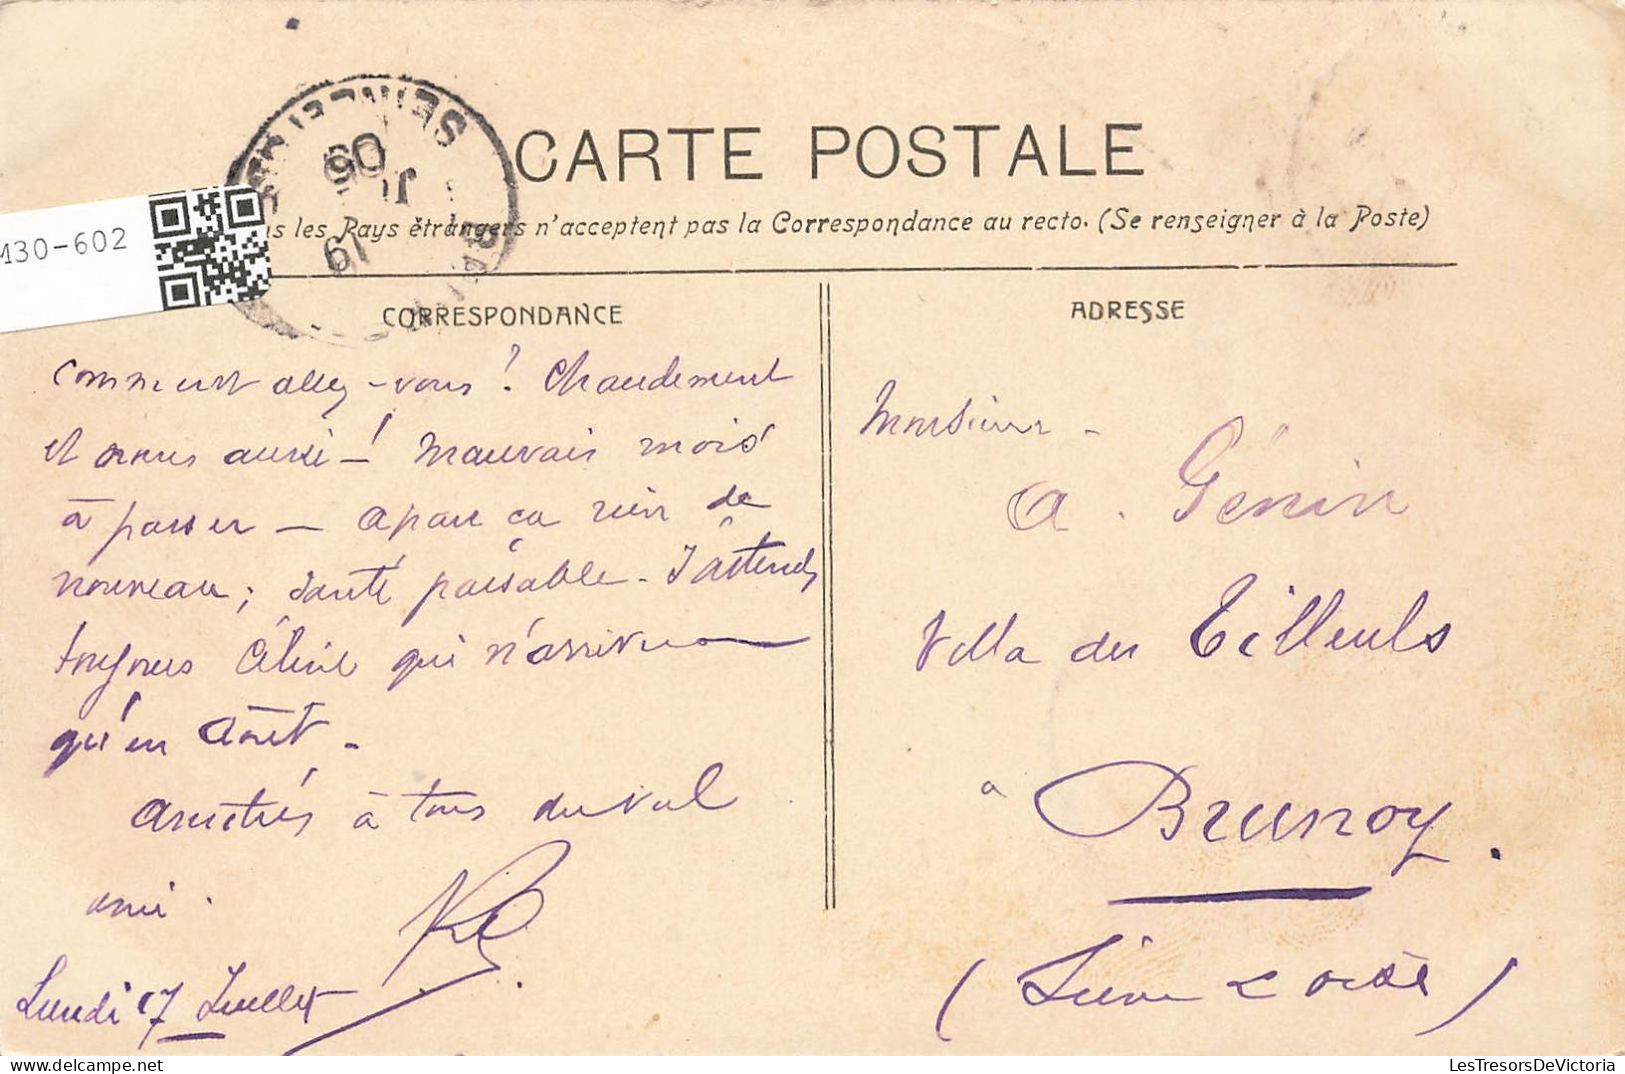 CARTE POSTALE
les Pays étrangers n'acceptent pas la Correspondance au recto. (Se renseigner à la Poste)
M30-602
CORRESPONDANCE
Comment allez-vous? Chaudement
et nous aussi! Mauvais mois
à passer - apart ça rien de
nouveau; Santé passable. J'attends
toujours Céline qui n'arrivera
qu'en Août -
Amitiés à tous du
ami.
Lundi 17 Juillet
ADRESSE
Monsieur -
A. Génin
Villa des Tilleuls
à Brunoy.
(Seine & Oise)
SEINE
05
LesTresorsDeVictoria